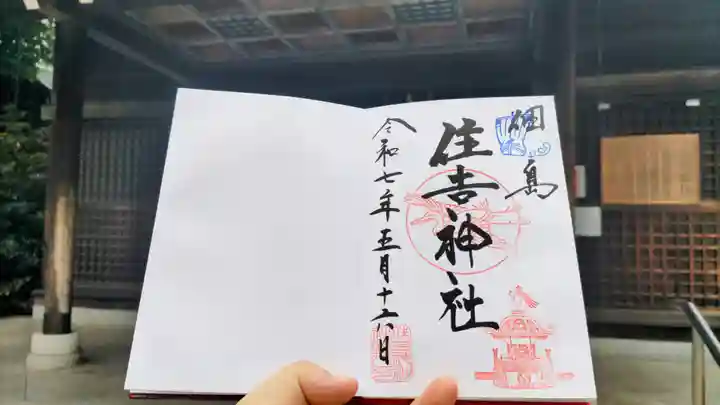 佃島
住吉神社
令和七年五月十六日